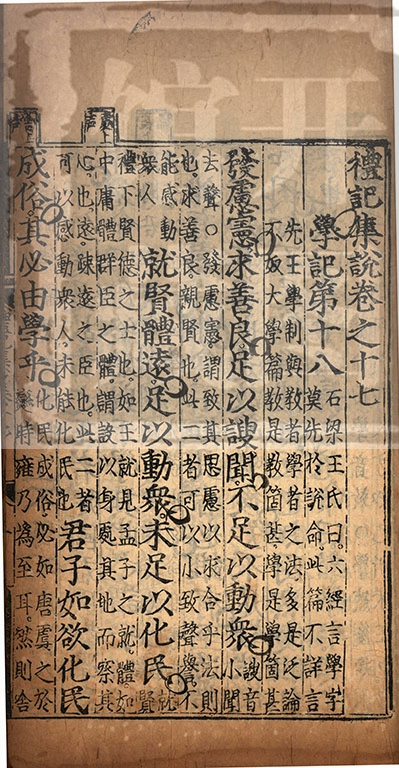 禮記集說卷之十七
學記第十八
石梁王氏曰。六經言學字
莫先於說命。此篇不詳言
先王學制與教者學者之法多是泛論
不如大學篇教是教箇甚學是學箇甚
發慮憲求善良足以謏聞。不足以動衆
謏音
小聞
去聲○發慮憲謂致其思慮以求合乎法則
也求善良親賢也。此二者可以小致聲譽。不
能感動
衆人
就賢體遠。足以動衆。未足以化民
就
賢
禮下賢德之士也。如王就見孟子之就。體如
中庸體群臣之體。謂設以身處其地而察其
心也。遠踈遠之臣也。此二者
可以感動衆人。未能化民也
君子如欲化民
成俗。其必由學乎
化民成俗。必如唐虞之於
變時雍乃為至耳。然則舍